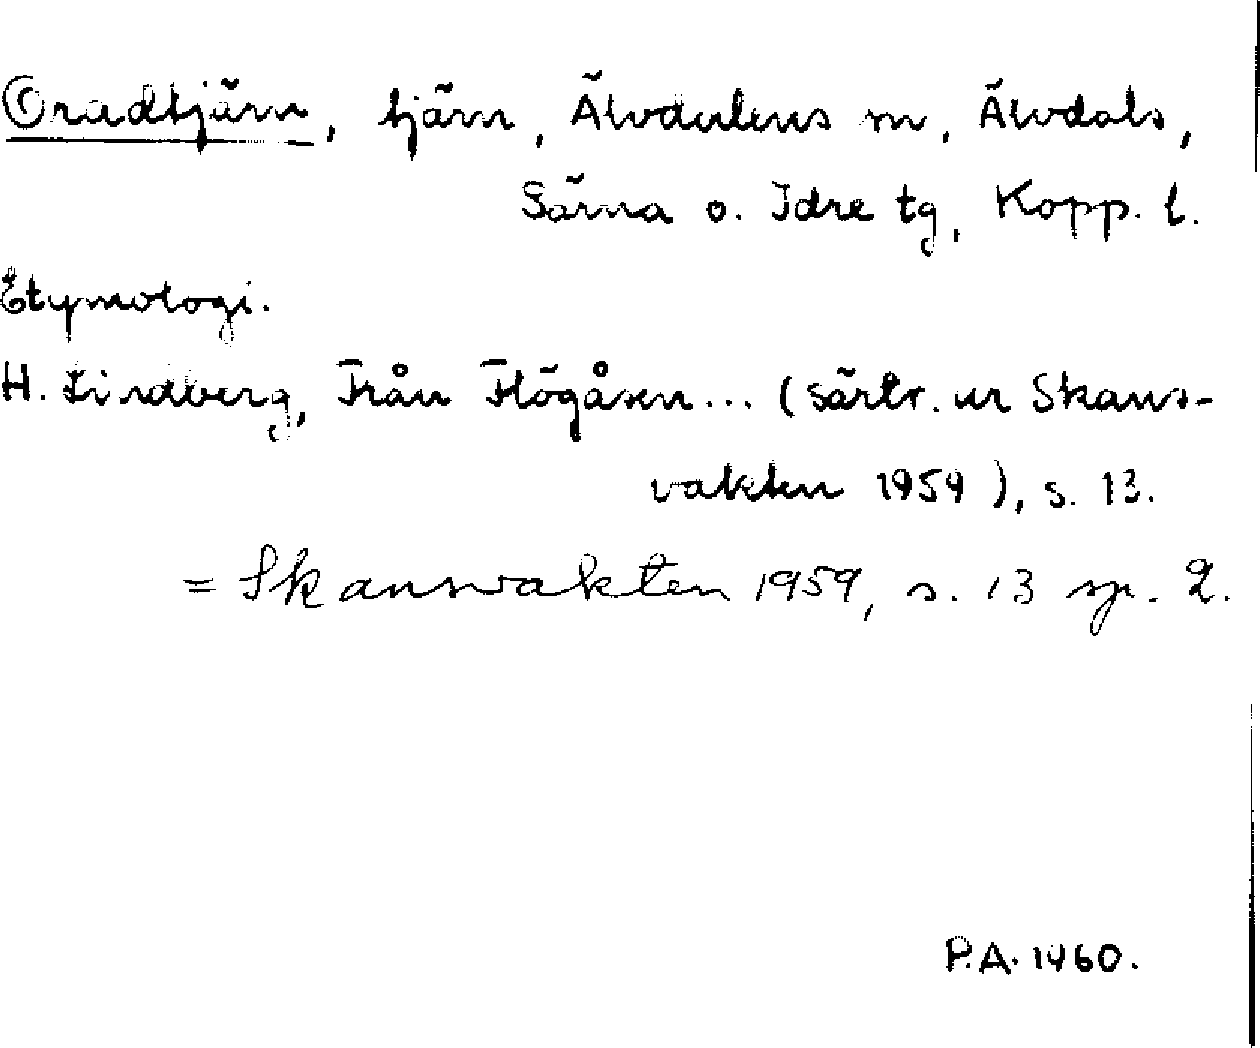 Oradtjärn, tjärn, Älvdalens sn, Älvdals,
Särna o. Idre tg, Kopp. l.
Etymologi.
H. Lindberg, Från Flögåsen... (särtr. ur Skans-
vakten 1959), s. 13.
= Skansvakten 1959, s. 13 sp. 2.
P.A. 1960.